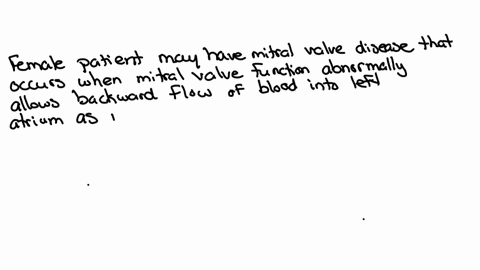 Female patient may have mitral valve disease that
occurs when mitral valve function abnormally
allows backward flow of blood into left
atrium as